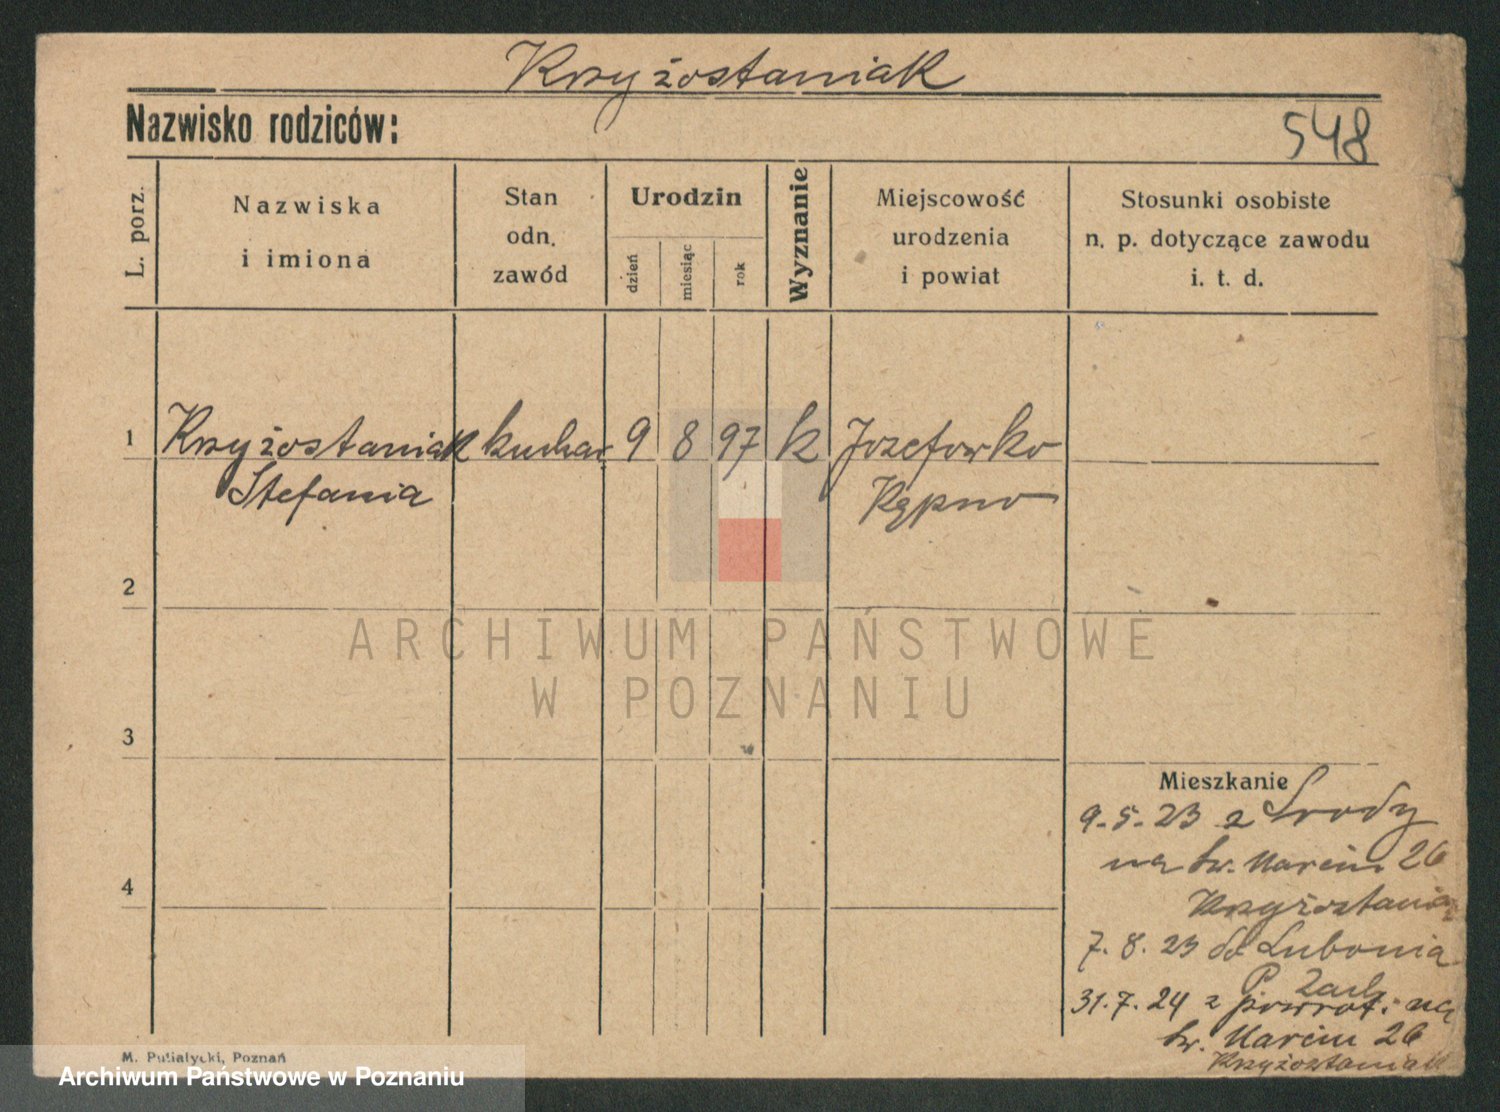 Krzyżostaniak
Nazwisko rodziców:
548
L. porz.
Nazwiska
i imiona
Stan
odn.
zawód
Urodzin
dzień
miesiąc
rok
Wyznanie
Miejscowość
urodzenia
i powiat
Stosunki osobiste
n. p. dotyczące zawodu
i. t. d.
1 Krzyżostaniak kuchar 9 8 97 k Jozefowko
Stefania Kępno
2
ARCHIWUM PAŃSTWOWE
W POZNANIU
3
Mieszkanie
9-5-23 z Srody
na św. Marcin 26
Krzyżostania
4
7.8.23 do Lubonia
P. Zach.
31.7.24 z powrot. na
św. Marcin 26
Krzyżostaniak
M. Putiatycki, Poznań
Archiwum Państwowe w Poznaniu